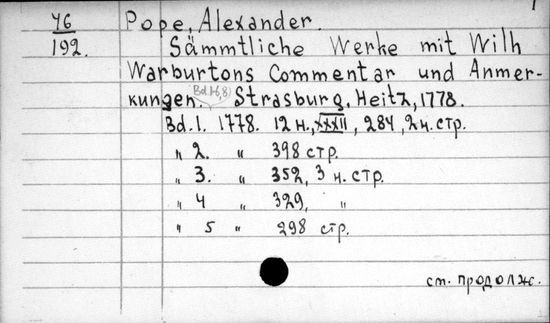 1
46
192.
Pope, Alexander.
Sämmtliche Werke mit Wilh
Warburtons Commentar und Anmer-
kungen. Strasburg, Heitz, 1778.
Bd. 1-6, 8)
Bd. 1. 1778. 12 н., XXXII, 284, 2 н. стр.
„ 2. „ 398 стр.
„ 3. „ 352, 3 н. стр.
„ 4 „ 329, „
„ 5 „ 298 стр.
ст. продолж.